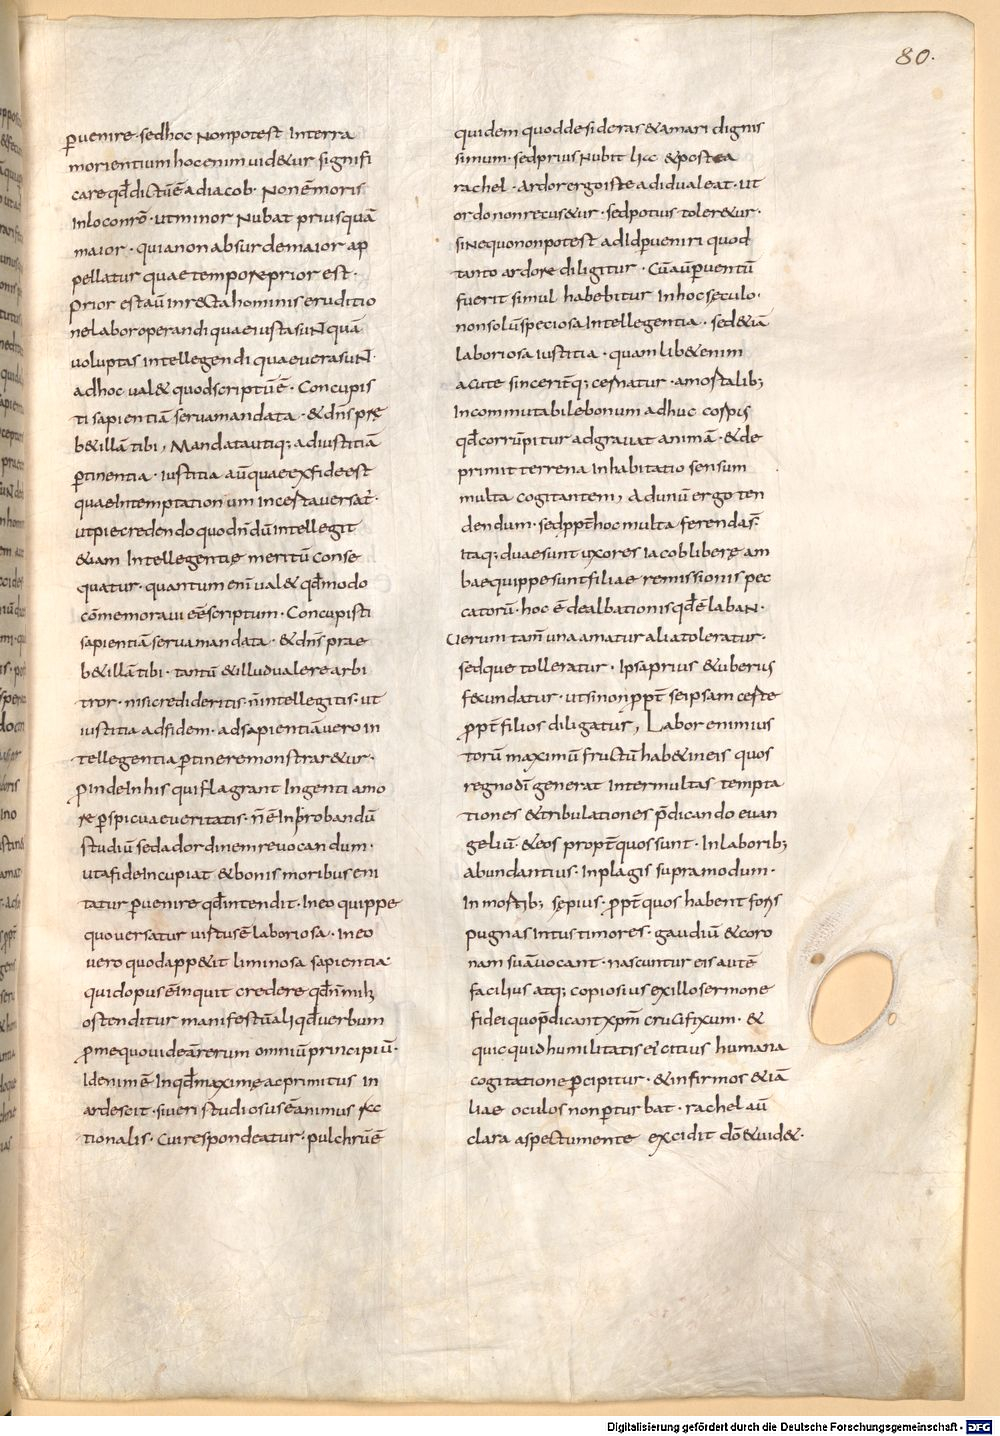 80.
ꝑuenire· sedhoc Nonpotest Interra
morientium hocenim uid&ur signifi
care qđ dictū ē adiacob· Non ē moris
Inloconrō· utminor Nubat priusquā
maior· quianonabsurdemaior ap
pellatur quaetemporeprior est·
Prior estaū Inrectahominis eruditio
nelaboroperandi quaeiustasuNt quā
uoluptas intellegendi quaeuerasuNt·
adhoc ual& quodscriptū ē· Concupis
ti sapientiā seruamandata· &dn̄s prę
b&illā tibi, Mandatautiq; adiustitiā
ꝑtinentia· iustitia aū quaeexfideest
quaeIntemptationum Incertauersat̄·
utpiecredendo quodnōdū intellegit
&iam Intellegentię meritū conse
quatur· quantum enī ual& qđmodo
cōmemoraui eē scriptum· Concupisti
sapientiā seruamandata· &dn̄s prae
b&illā tibi· tantū &illudualere arbi
tror· nisicredideritis· n̄ intellegitis· ut
iustitia adfidem· adsapientiāuero in
tellegentia ꝑtineremonstrar&ur·
ꝓindeInhis qui flagrant Ingenti amo
re ꝑspicuaeueritatis· n̄ ē Inprobandū
studiū sedadordinemreuocandum·
utafideIncipiat &bonis moribus eni
tatur ꝑuenire qđ intendit· Ineo quippe
quouersatur uirtus ē laboriosa· Ineo
uero quodapp&it liminosa sapientia·
quidopus ē Inquit credere qđn̄ mihi
ostenditur manifestū aliqđ uerbum
ꝓmequouideārerum omniū principiū·
Idenim ē Inqđ maximęacprimitus in
ardescit· siueri studiosus ē animus ra
tionalis· Cuirespondeatur· pulchrū ē
quidem quoddesideras &amari dignis
simum· sedprius Nubit lia &postea
rachel· Ardorergoiste adidualeat· ut
ordononrecus&ur· sedpotius toler&ur·
siNequononpotest adid ꝑueniri quod
tanto ardore diligitur· Cū aū ꝑuentū
fuerit simul habebitur Inhocseculo·
nonsolū speciosaIntellegentia· sed&iā
laboriosa iustitia· quamlib&enim
acute sinceriterq; cernatur· amortalib;
Incommutabilebonum adhuc corpis
qđcorrūpitur adgrauat animā· &de
primit terrena Inhabitatio sensum
multa cogitantem, Adunū ergo ten
dendum· sedꝓpt̄hoc multa ferendas̄·
Itaq; duaesunt uxores Iacob liberę am
baequippesuntfiliae remissionis pec
catorū· hoc ē dealbationisqđ ē labaN·
Uerum tam̄ una amatur aliatoleratur·
sedque tolleratur· Ipsaprius &uberius
fecundatur· utsinonꝓpt̄ seipsam certe
ꝓpt̄ filios diligatur, Labor enimius
torū maximū fructū hab&ineis quos
regnodī generat Intermultas tempta
tiones &tribulationes p̄dicando euan
geliū· &eos propt̄quos sunt· Inlaborib;
abundantius· Inplagis supramodum·
In mortib; sępius· ꝓpt̄quos habent foris
pugnas Intus timores· gaudiū &coro
nam suāuocant· nascuntur eis autē
facilius atq; copiosius exillosermone
fideiquop̄dicantxpm̄ crucifixum· &
quicquidhumilitatis ei citius humana
cogitatione ꝑcipitur· &infirmos &iā
liae oculos nonꝑturbat· rachel aū
clara aspectumente excidit dō &uid&·
Digitalisierung gefördert durch die Deutsche Forschungsgemeinschaft - DFG